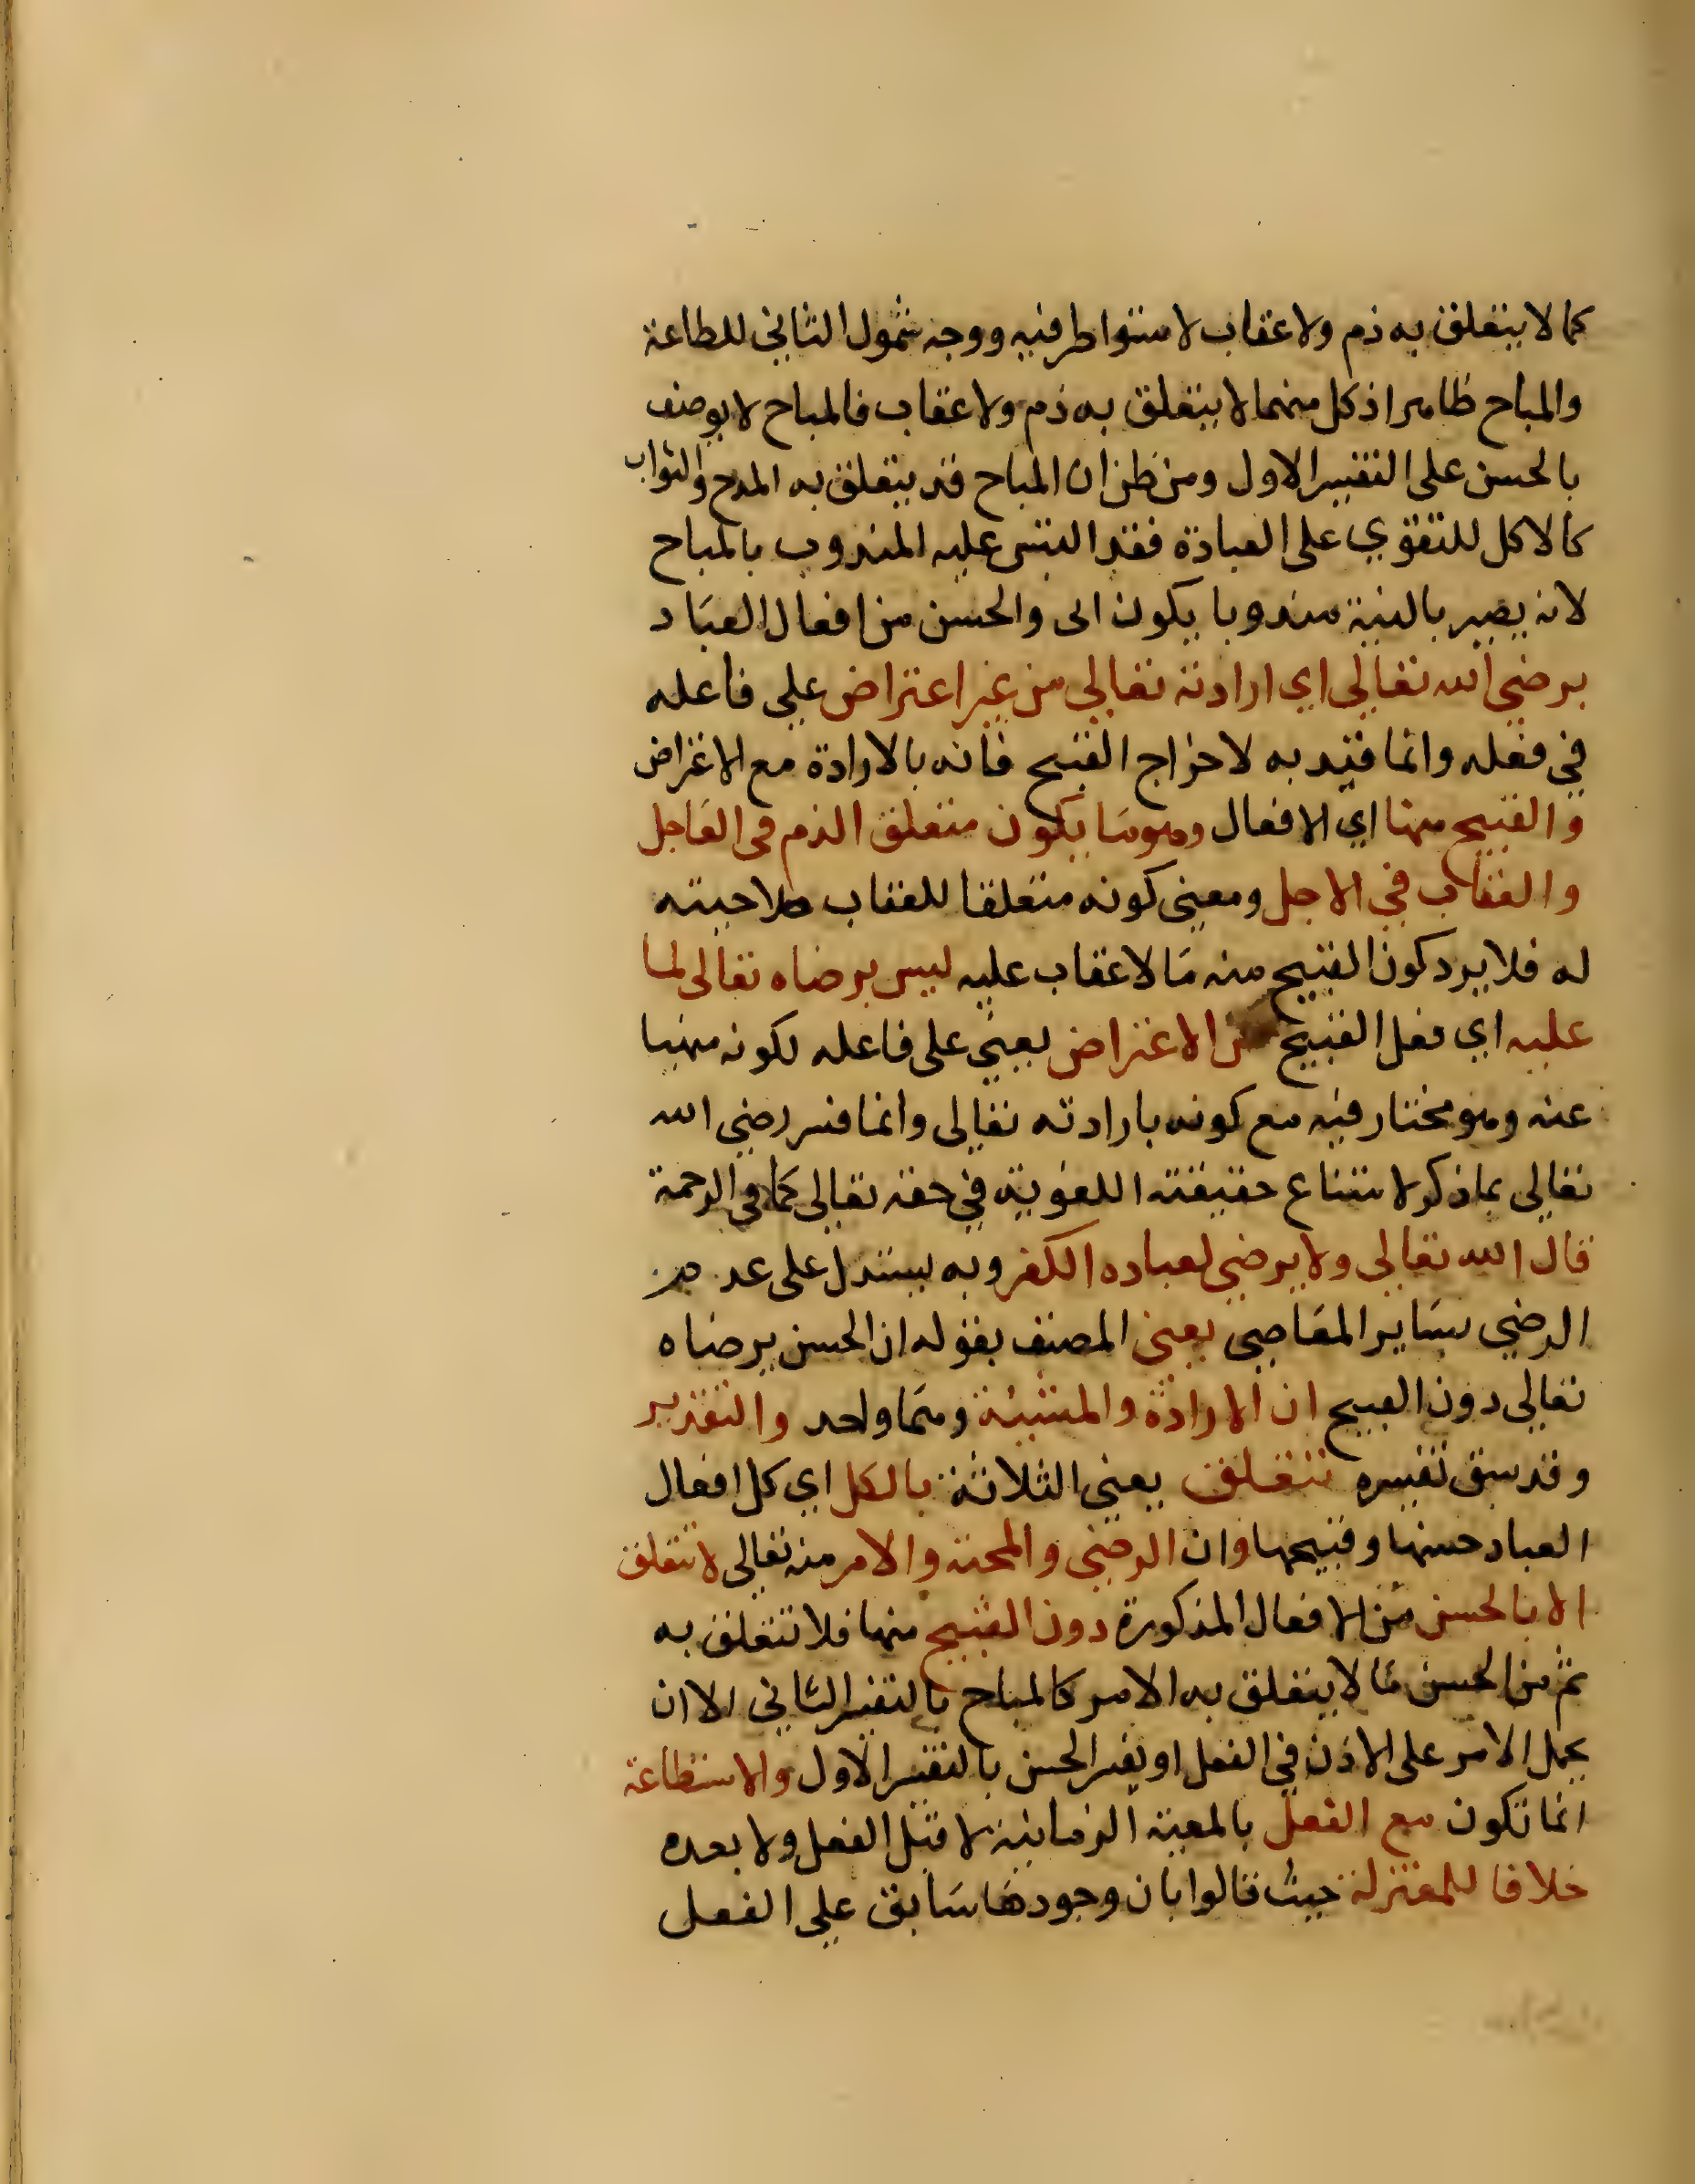 كما لا يتعلق به ذم ولا عقاب لاستوا طرفيه ووجه شمول الثاني للطاعة
والمباح ظاهر اذ كل منهما لا يتعلق به ذم ولا عقاب فالمباح لا يوصف
بالحسن على التفسير الاول ومن ظن ان المباح قد يتعلق به المدح والثواب
كالاكل للتقوي على العبادة فقد التبس عليه المندوب بالمباح
لانه يصير بالنية مندوبا يكون الى والحسن من افعال العباد
برضي الله تعالى اي ارادته تعالي من غير اعتراض علي فاعله
في فعله وانما قيد به لاخراج القبيح فانه بالارادة مع الاعتراض
والقبيح منها اي الافعال وهو ما يكون متعلق الذم في العاجل
والعقاب في الاجل ومعني كونه متعلقا للعقاب صلاحيته
له فلا يرد كون القبيح منه ما لا عقاب عليه ليس برضاه تعالى لما
عليه اي فعل القبيح من الاعتراض يعني على فاعله لكونه منهيا
عنه وهو مختار فيه مع كونه بارادته تعالى وانما فسر رضي الله
تعالى بما ذكر لامتناع حقيقته اللغوية في حقه تعالى كما في الرحمة
قال الله تعالى ولا يرضي لعباده الكفر وبه يستدل على عدم
الرضي بساير المعاصي يعني المصنف بقوله ان الحسن برضاه
تعالى دون القبيح ان الارادة والمشيئة وهما واحد والتقدير
وقد سبق تفسيره تتعلق يعني الثلاثة بالكل اي كل افعال
العباد حسنها وقبيحها وان الرضي والمحبة والامر منه تعالى لا تتعلق
الا بالحسن من الافعال المذكورة دون القبيح منها فلا تتعلق به
ثم من الحسن ما لا يتعلق به الامر كالمباح بالتفسير الثاني الا ان
يحمل الامر على الاذن في الفعل او يفسر الحسن بالتفسير الاول والاستطاعة
انما تكون مع الفعل بالمعية الزمانية لا قبل الفعل ولا بعده
خلافا للمعتزلة حيث قالوا بان وجودها سابق علي الفعل